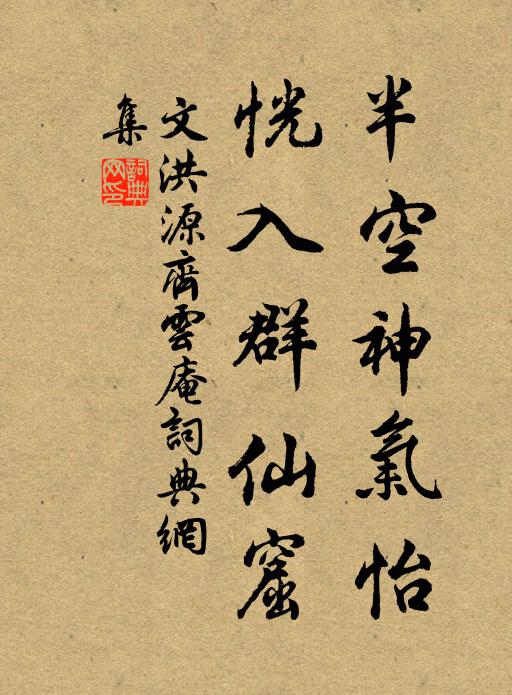 半空神氣怡
恍入群仙窟
文洪源齊雲庵詞典網
集
詞典
网印